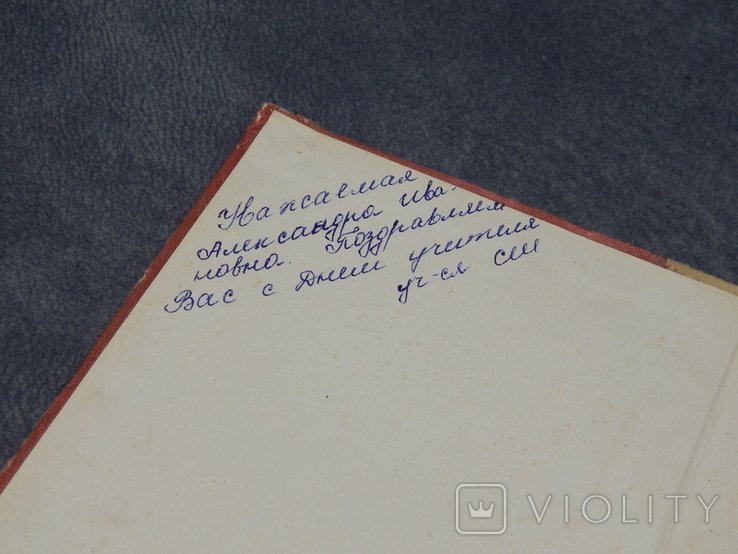 Уважаемая
Александра Ива-
новна. Поздравляем
Вас с Днем учителя
уч-ся СШ
VIOLITY